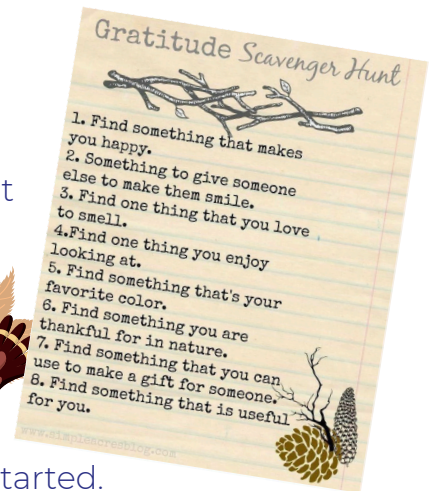 Gratitude Scavenger Hunt
1. Find something that makes
you happy.
2. Something to give someone
else to make them smile.
3. Find one thing that you love
to smell.
4.Find one thing you enjoy
looking at.
5. Find something that's your
favorite color.
6. Find something you are
thankful for in nature.
7. Find something that you can
use to make a gift for someone.
8. Find something that is useful
for you.
www.simpleacresblog.com
t
tarted.